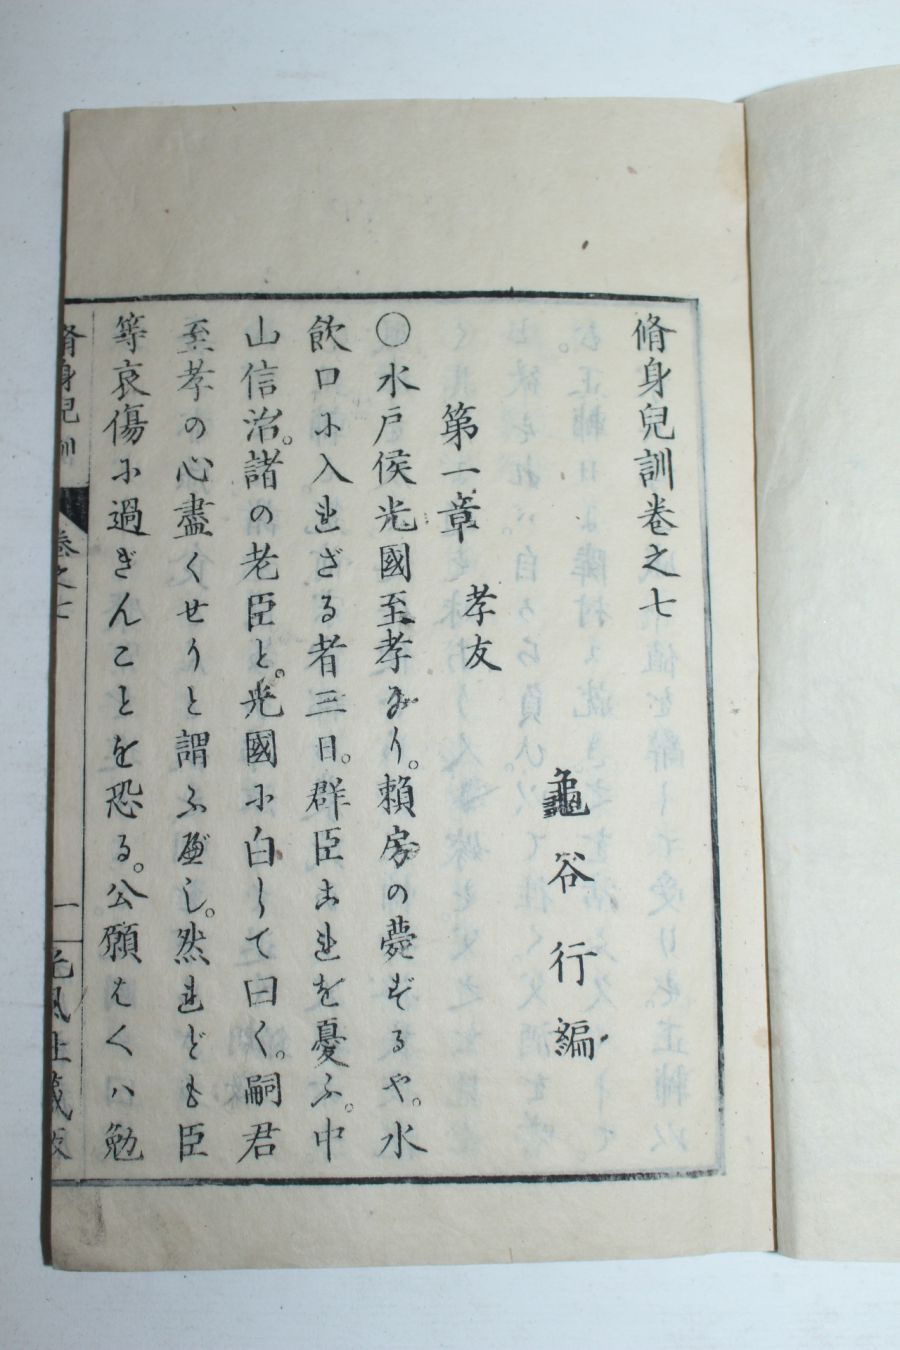 脩身兒訓卷之七
龜谷行編
第一章 孝友
〇水戸侯光國至孝なり。賴房の薨ずるや。水
飲口に入れざる者三日。群臣これを憂ふ。中
山信治。諸の老臣と。光國に白して曰く。嗣君
至孝の心盡くせりと謂ふべし。然れども臣
等哀傷に過ぎんことを恐る。公願はくハ勉
脩身兒訓 卷之七 一 光風社藏版